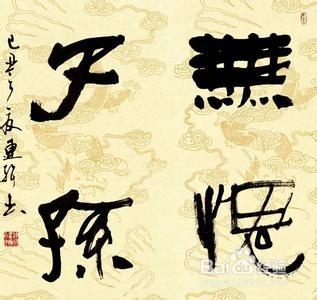 無愧
子孫
己丑之夏
书
Bai 经验